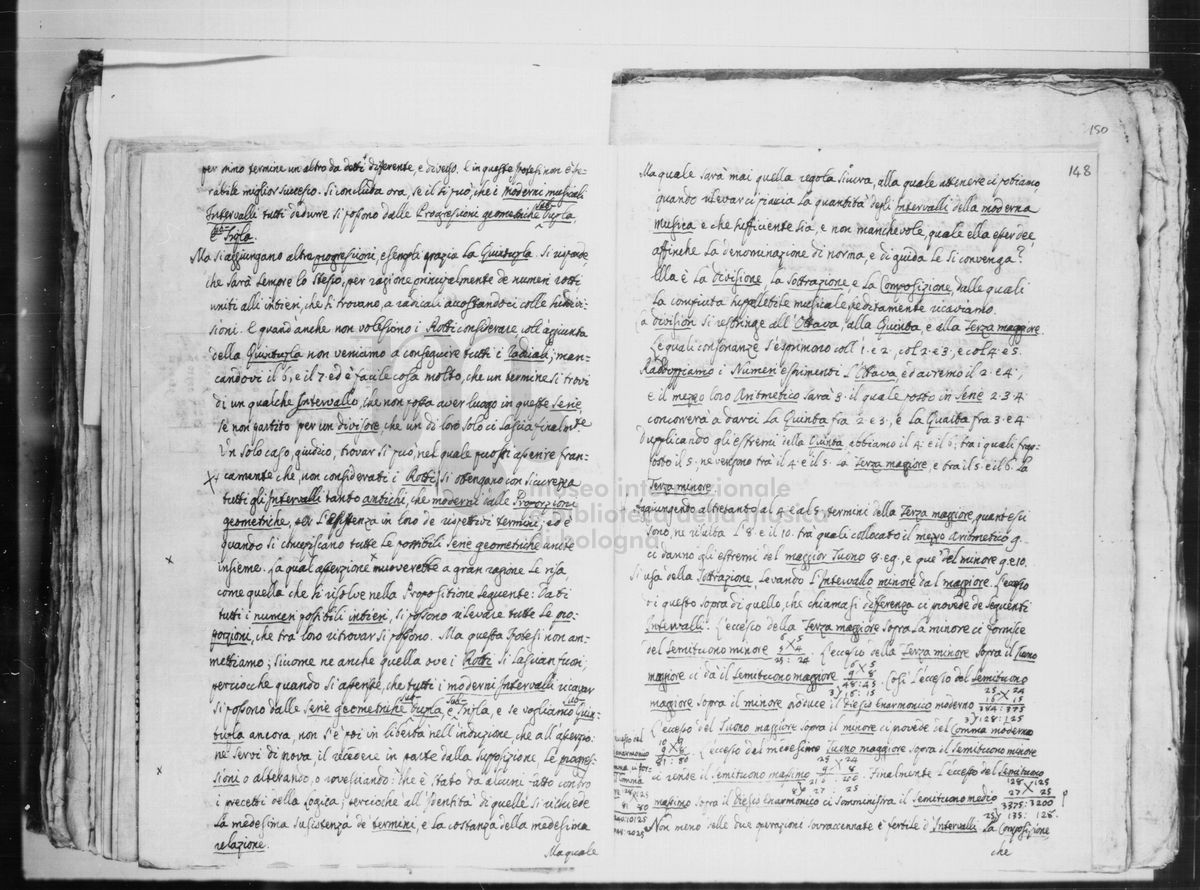 per primo termine un altro da detti differente, e diverso. E in queste Ipotesi non è spe-
rabile miglior successo. Si concluda ora, se il si può, che i moderni musicali
Intervalli tutti dedurre si possono dalle Progressioni geometriche sub- Dupla,
e Tripla.
Ma si aggiungano altre progressioni, e sempli grazia La Quintupla. Si risponde
che sarà sempre lo stesso, per ragione principalmente de numeri rotti
uniti alli intieri, che si trovano, a radicali accostandoci colle suddivi-
sioni. E quand'anche non volessimo i Rotti considerare coll'aggiunta
della Quintupla non veniamo a conseguire tutti i Radicali; man-
candovi il 6, e il 7. ed è facile cosa molto, che un termine si trovi
di un qualche Intervallo, che non possa aver luogo in queste serie,
se non partito per un divisore che un di loro solo ci lascia finalmte
In solo caso, giudico, trovar si può, nel quale puossi asserire fran-
camente che, non considerati i Rotti, si ottengano con sicurezza
tutti gli Intervalli tanto antichi, che moderni dalle Proporzioni
geometriche, per l'esistenza in loro de rispettivi termini; ed è
quando si concepiscano tutte le possibili serie geometriche unite
insieme. La qual asserzione muoverebbe a gran ragione le risa,
come quella che si risolve nella Proposizione seguente: Dati
tutti i numeri possibili intieri, si possono rilevare tutte le pro-
porzioni, che tra loro ritrovar si possono. Ma questa Ipotesi non am-
mettiamo; siccome ne anche quella ove i Rotti si lascian fuori,
perciocche quando si asserisce, che tutti i moderni Intervalli ricavar
si possono dalle serie geometriche sub- Dupla, e sub- Tripla, e se vogliamo sub- Quin-
tupla ancora, non s'è poi in libertà nell'induzione, che all'asserzio-
ne servi di prova il recedere in parte dalla supposizione, Le progres-
sioni o alterando, o rovesciando: che è stato da alcuni fatto contro
i precetti della Logica; perciocche all'Identità di quelle si richiede
la medesima sussistenza de termini, e la costanza della medesima
relazione.
Ma quale
150
148
Ma quale sarà mai quella regola sicura, alla quale attenere ci possiamo
quando rilevarci piaccia la quantità degli Intervalli della moderna
musica e che sufficiente sia, e non manchevole, quale ella esser dee,
affinche la denominazione di norma, e di guida le si convenga?
Ella è la divisione, la sottrazione, e la Composizione, dalle quali
la compiuta supelletile musicale speditamente ricaviamo.
La division si restringe all'Ottava, alla Quinta, e alla Terza maggiore.
Le quali consonanze s'esprimono coll'1. e 2., col 2. e 3., e col 4. e 5.
Raddoppiamo i Numeri esprimenti l'Ottava, ed avremo il 2. e 4.,
e il mezzo loro Aritmetico sarà 3. il quale posto in Serie 2. 3. 4.
concorrerà a darci la Quinta fra 2. e 3., e la Quarta fra 3. e 4.
Duplicando gli estremi della Quinta, abbiamo il 4. e il 6; tra i quali frap-
posto il 5. ne vengono trà il 4. e il 5. la Terza maggiore, e tra il 5. e il 6. la
Terza minore.
Aggiungendo altretanto al 4. e al 5. termini della Terza maggiore, quant'essi
sono, ne risulta l'8. e il 10. tra quali collocato il mezzo Aritmetico 9.
ci danno gli estremi del maggior Tuono 8. e 9., e que' del minore 9. e 10.
Si usa della Sottrazione, levando l'Intervallo minore dal maggiore. L'eccesso
di questo sopra di quello, che chiamasi differenza ci provede de seguenti
Intervalli. L'eccesso della Terza maggiore sopra la minore ci fornisce
del Semituono minore 6 X 5 5 4 25: 24 . L'eccesso della Terza minore sopra il Tuono
maggiore ci dà il Semituono maggiore 6 X 5 9 8 48:45 3) 16:15 . Così l'eccesso del Semituono
maggiore sopra il minore produce il Diesis Enarmonico moderno 25 X 24 16 15 384:375 3) 128:125
L'eccesso del Tuono maggiore sopra il minore ci provede del Comma moderno
10 X 9 9 8 81:80 . L'eccesso del medesimo Tuono maggiore sopra il Semituono minore
ci rende il Semituono massimo 25 X 24 9 8 216 200 8) 27 25 . Finalmente l'eccesso del Semituono
massimo sopra il Diesis Enarmonico ci somministra il Semituono medio 128 X 125 27 25 3375:3200 25) 135: 128.
Non meno delle due operazioni sovraccennate è fertile d'Intervalli la Composizione,
che
museo internazionale
e biblioteca della musica
di bologna